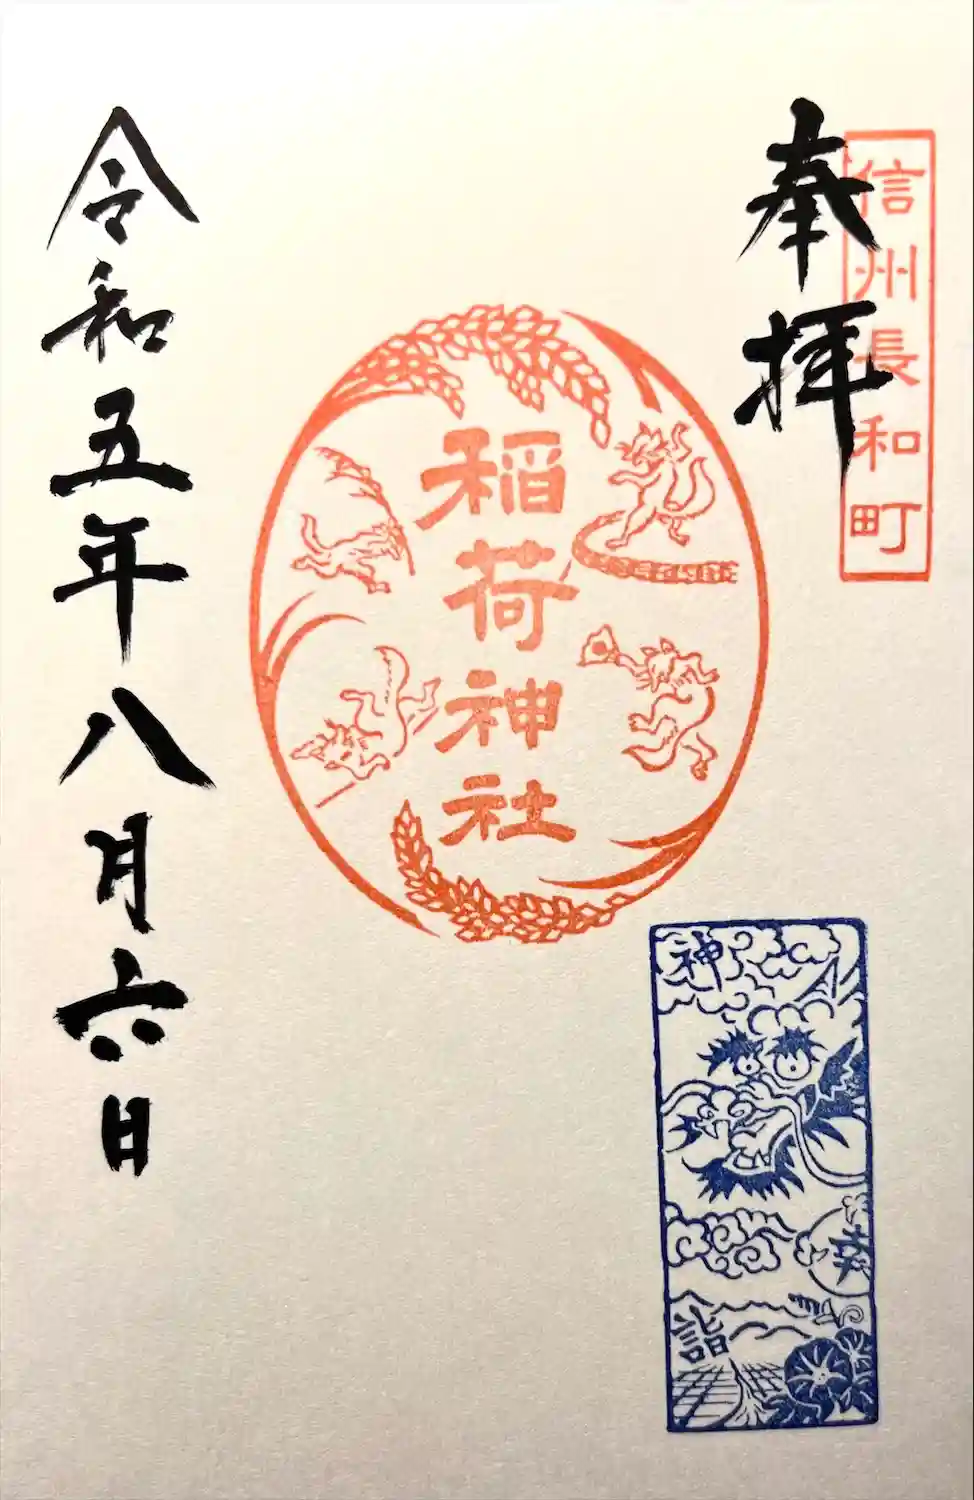 信州長和町
奉拝
稲荷神社
神
幸
詣
令和五年八月六日